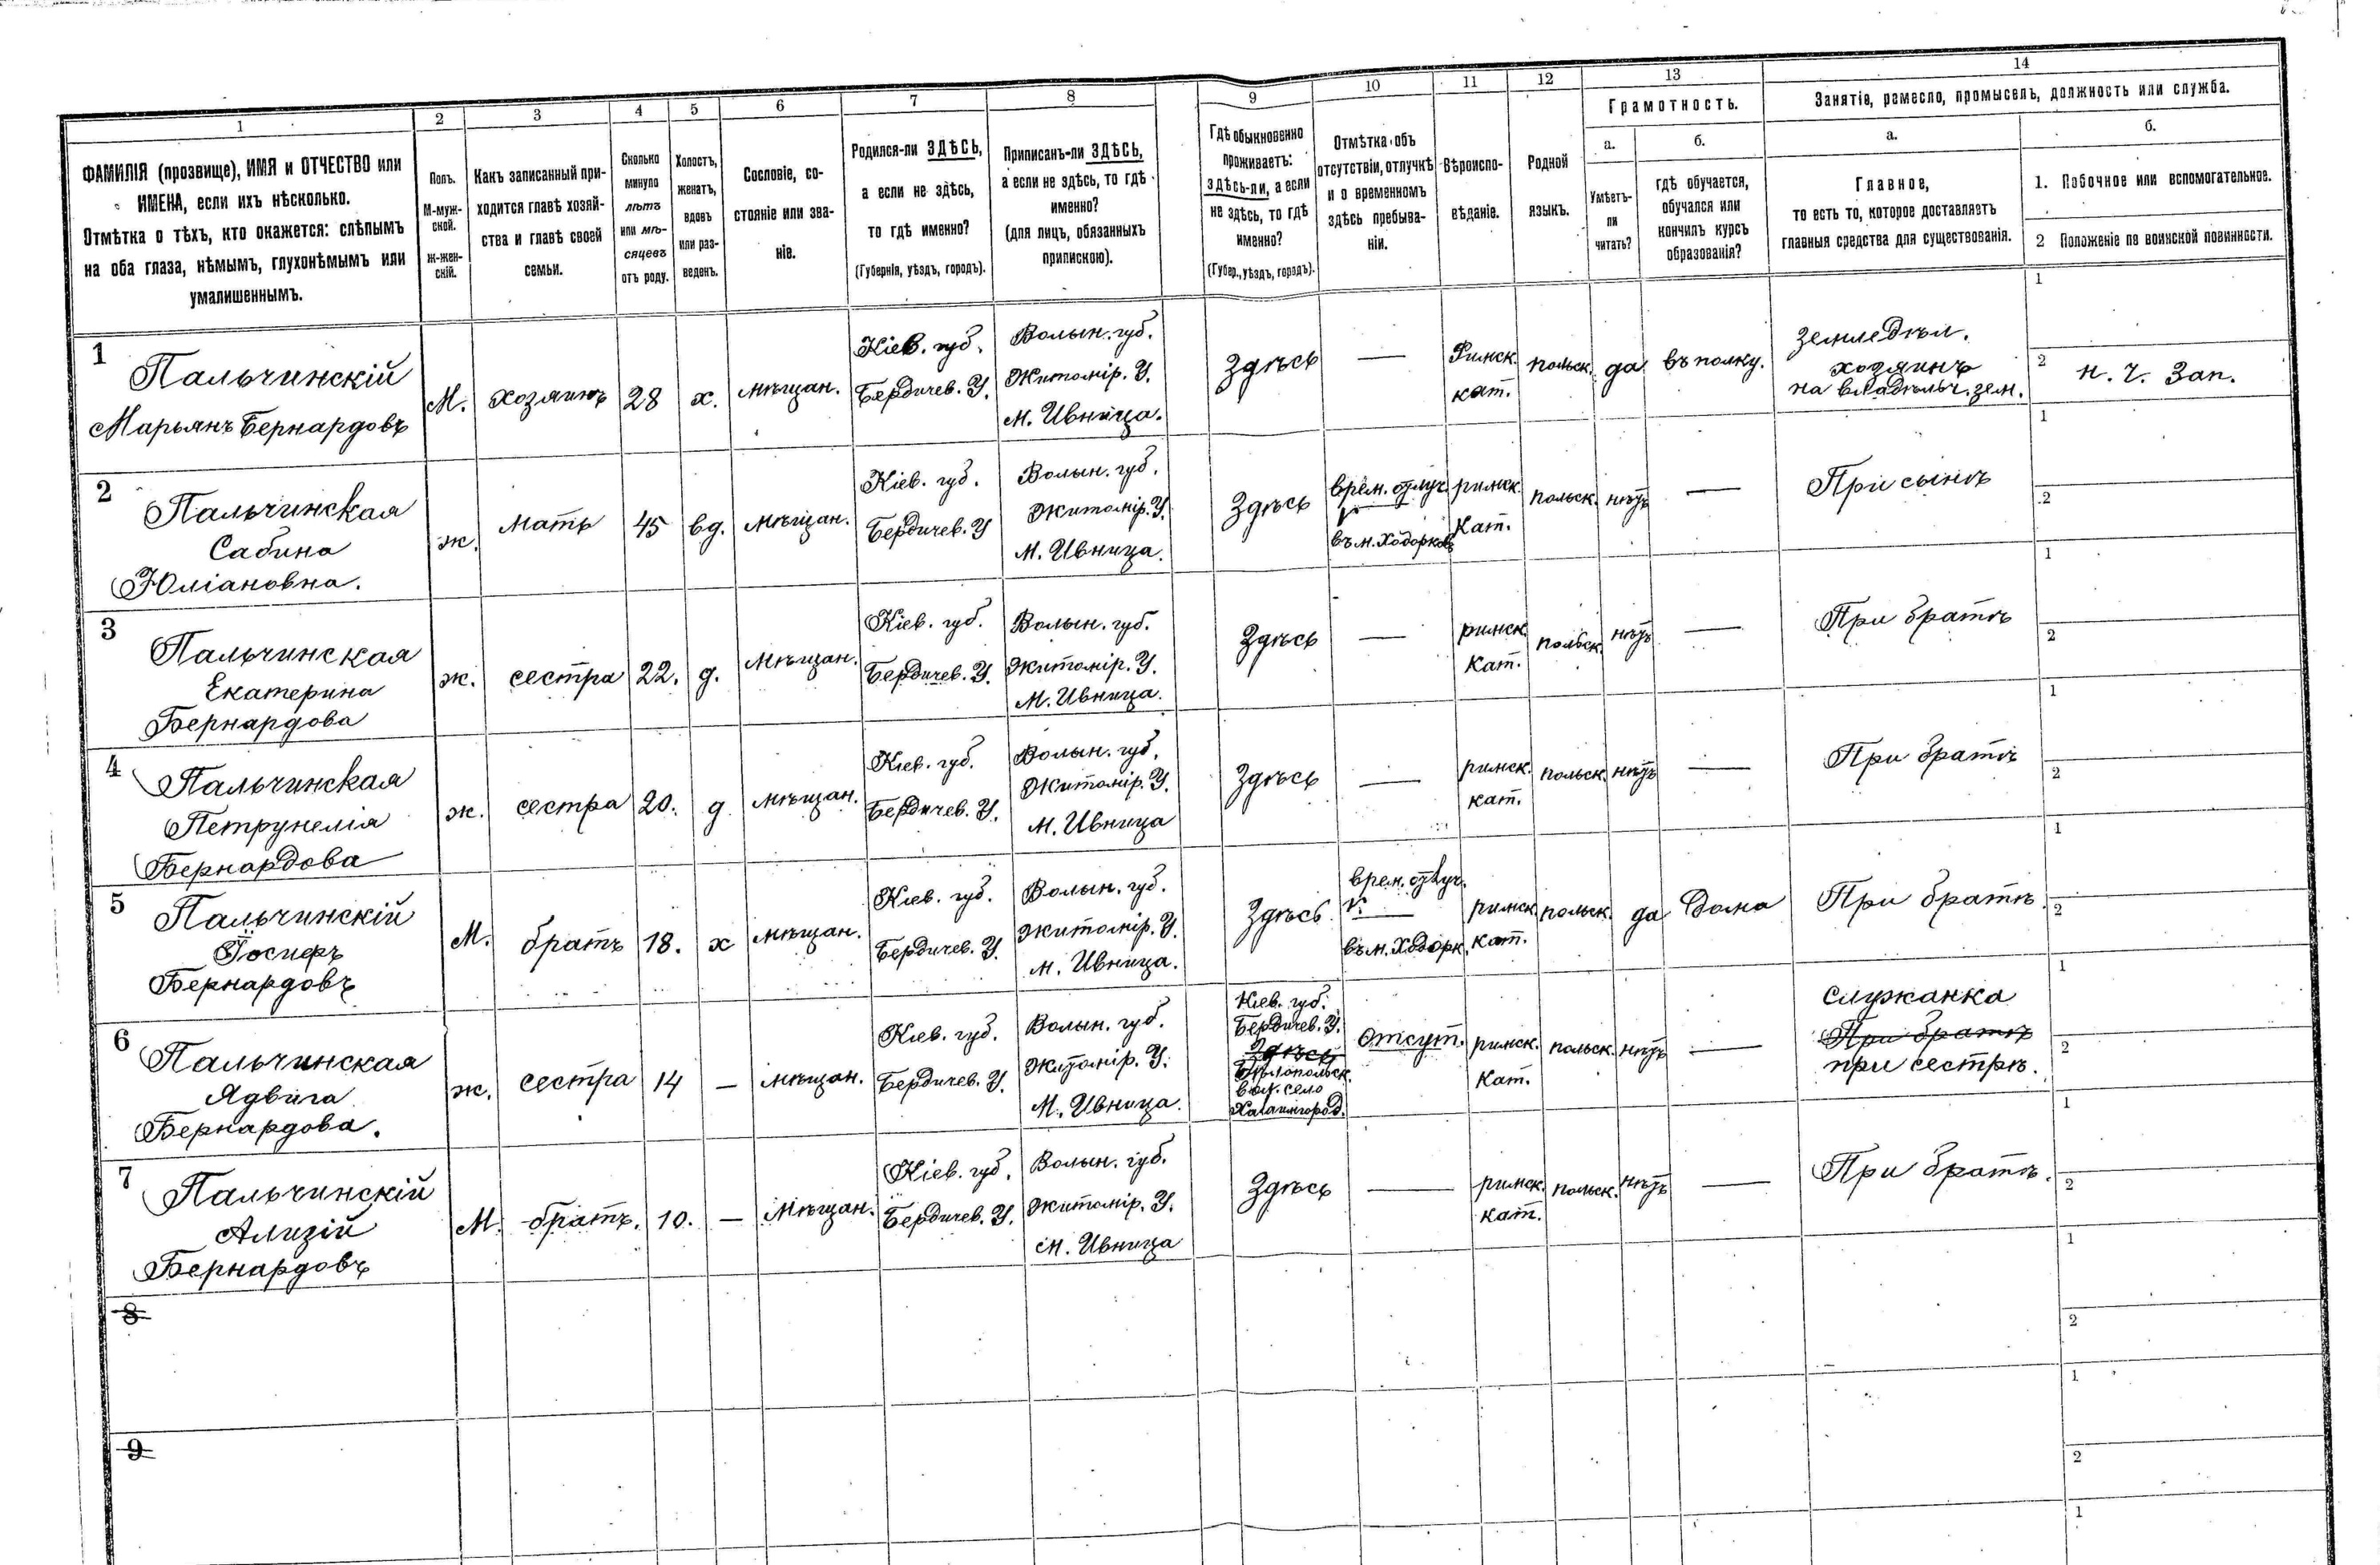 1 2 3 4 5 6 7 8 9 10 11 12 13 14
ФАМИЛІЯ (прозвище), ИМЯ и ОТЧЕСТВО или
ИМЕНА, если ихъ нѣсколько.
Отмѣтка о тѣхъ, кто окажется: слѣпымъ
на оба глаза, нѣмымъ, глухонѣмымъ или
умалишеннымъ.
Полъ.
М-муж-
ской.
Ж-жен-
скій.
Какъ записанный при-
ходится главѣ хозяй-
ства и главѣ своей
семьи.
Сколько
минуло
лѣтъ
или мѣ-
сяцевъ
отъ роду.
Холостъ,
женатъ,
вдовъ
или раз-
веденъ.
Сословіе, со-
стояніе или зва-
ніе.
Родился-ли ЗДѢСЬ,
а если не здѣсь,
то гдѣ именно?
(Губернія, уѣздъ, городъ).
Приписанъ-ли ЗДѢСЬ,
а если не здѣсь, то гдѣ
именно?
(для лицъ, обязанныхъ
припискою).
Гдѣ обыкновенно
проживаетъ:
здѣсь-ли, а если
не здѣсь, то гдѣ
именно?
(Губер., уѣздъ, городъ).
Отмѣтка объ
отсутствіи, отлучкѣ
и о временномъ
здѣсь пребыва-
ніи.
Вѣроиспо-
вѣданіе.
Родной
языкъ.
Грамотность.
а.
Умѣетъ-
ли
читать?
б.
гдѣ обучается,
обучался или
кончилъ курсъ
образованія?
Занятіе, ремесло, промыселъ, должность или служба.
а.
Главное,
то есть то, которое доставляетъ
главныя средства для существованія.
б.
1. Побочное или вспомогательное.
2 Положеніе по воинской повинности.
1
Пальчинскій
Марьянъ Бернардовъ
М.
хозяинъ
28
х.
мѣщан.
Кіев. губ.
Бердичев. У.
Волын. губ.
Житомір. У.
м. Ивница.
Здѣсь
—
Римск.
кат.
польск.
да
въ полку.
земледѣл.
хозяинъ
на владѣльч. зем.
1
2
н. ч. Зап.
2
Пальчинская
Сабина
Юліановна.
ж.
мать
45
вд.
мѣщан.
Кіев. губ.
Бердичев. У
Волын. губ.
Житомір. У.
м. Ивница.
Здѣсь
врем. отлуч.
въ м. Ходорков
римск.
Кат.
польск.
нѣтъ
—
При сынѣ
1
2
3
Пальчинская
Екатерина
Бернардова
ж.
сестра
22.
д.
мѣщан.
Кіев. губ.
Бердичев. У.
Волын. губ.
Житомір. У.
м. Ивница.
Здѣсь
—
римск.
Кат.
польск.
нѣтъ
—
При братѣ
1
2
4
Пальчинская
Петрунелія
Бернардова
ж.
сестра
20.
д
мѣщан.
Кіев. губ.
Бердичев. У.
Волын. губ.
Житомір. У.
м. Ивница
Здѣсь
—
римск.
кат.
польск.
нѣтъ
—
При братѣ
1
2
5
Пальчинскій
Іосифъ
Бернардовъ
М.
братъ
18.
х
мѣщан.
Кіев. губ.
Бердичев. У.
Волын. губ.
Житомір. У.
м. Ивница.
Здѣсь
врем. отлуч.
въ м. Ходорк.
римск.
кат.
польск.
да
Дома
При братѣ
1
2
6
Пальчинская
Ядвига
Бернардова.
ж.
сестра
14
—
мѣщан.
Кіев. губ.
Бердичев. У.
Волын. губ.
Житомір. У.
м. Ивница.
Кіев. губ.
Бердичев. У.
Здѣсь
Бѣлопольск.
вол. село
отсут.
римск.
Кат.
польск.
нѣтъ
—
служанка
При братѣ
при сестрѣ.
1
2
7
Пальчинскій
Ализій
Бернардовъ
М.
братъ.
10.
—
мѣщан.
Кіев. губ.
Бердичев. У.
Волын. губ.
Житомір. У.
м. Ивница
Здѣсь
—
римск.
кат.
польск.
нѣтъ
—
При братѣ.
1
2
8
1
2
9
1
2
1